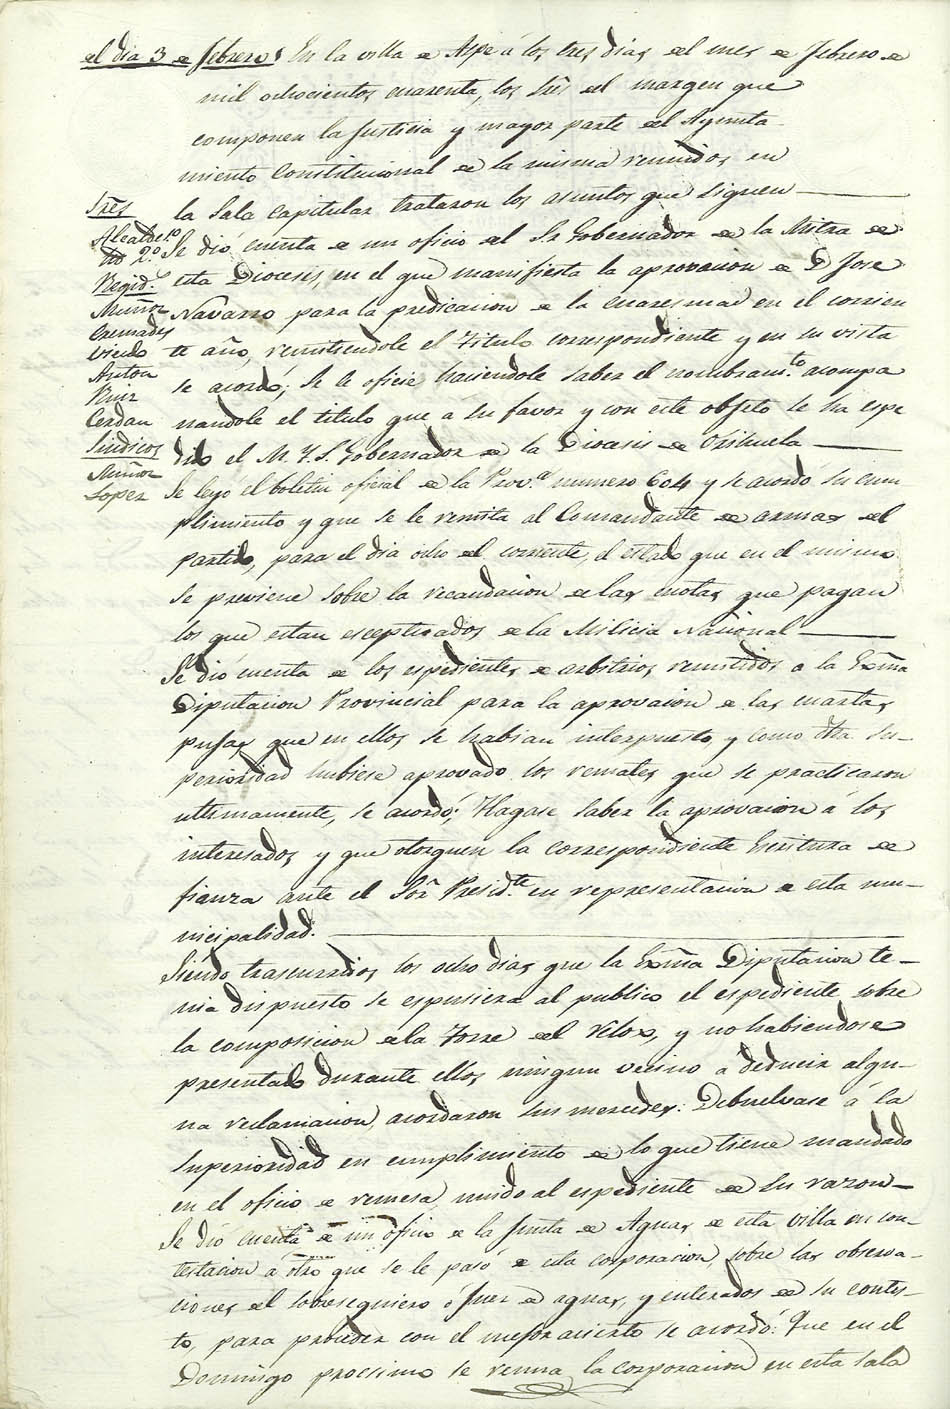 el dia 3 de febrero. En la villa de Aspe á los tres dias del mes de Febrero de
mil ochocientos cuarenta, los Srēs del margen que
componen la Justicia y mayor parte del Ayunta-
miento Constitucional de la misma reunidos en
la Sala Capitular trataron los asuntos que siguen
Srēs
Alcalde 1º
Ydo 2º
Regid.s
Muñoz
Cremades
Vicedo
Anton
Ruiz
Cerdan
Sindicos
Muñoz
Lopez
Se dió cuenta de un oficio del Sr Gobernador de la Mitra de
esta Diocesis, en el que manifiesta la aprovacion de D Jose
Navarro para la predicacion de la cuaresma en el corrien
te año, remitiendole el Titulo correspondiente y en su vista
se acordó; Se le oficie haciendole saber el nombram.to acompa
nandole el titulo que a su favor y con este objeto le ha espe
dido el M. Y. S. Gobernador de la Diocesis de Orihuela
Se leyo el boletin oficial de la Prov.a numero 604 y se acordo su cum
plimiento y que se le remita al Comandante de armas del
partido, para el dia ocho del corriente, el estado que en el mismo
se previene sobre la recaudacion de las cuotas que pagan
los que estan esceptuados de la Milicia Nacional
Se dió cuenta de los espedientes de arbitrios remitidos a la Exm̄a
Diputacion Provincial para la aprovacion de las cuartas
pujas que en ellos se habian interpuesto y como dha su-
perioridad hubiese aprovado los remates que se practicaron
ultimamente, se acordó; Hagase saber la aprovacion á los
interesados y que otorguen la correspondiente Escritura de
fianza ante el Sor̄ Presid.te en representacion de esta mu-
nicipalidad.
Siendo trascurridos los ocho dias que la Exm̄a Diputacion te-
nia dispuesto se espusiera al publico el espediente sobre
la composicion de la Torre del Relox, y no habiendose
presentado durante ellos ningun vecino a deducir algu-
na reclamacion, acordaron sus mercedes: Debuelvase á la
Superioridad en cumplimiento de lo que tiene mandado
en el oficio de remesa, unido al espediente de su razon
Se dió cuenta de un oficio de la Junta de Aguas de esta Villa en con-
testacion á otro que se le pasó de esta corporacion, sobre las observa-
ciones del sobresequiero ó Juez de aguas, y enterados de su contes-
to, para proceder con el mejor acierto se acordó: Que en el
Domingo procsimo se reuna la corporacion en esta sala